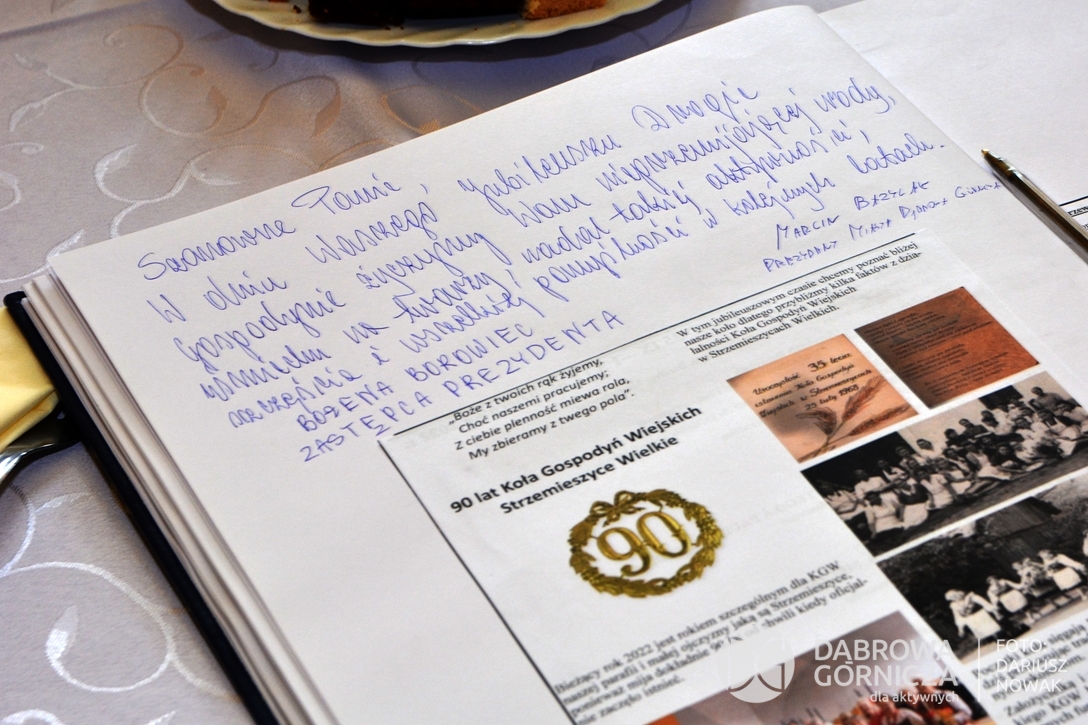 Szanowne Panie,
W dniu Waszego Jubileuszu Drogie
Gospodynie życzymy Wam nieprzemijającej urody,
uśmiechu na twarzy, nadal takiej aktywności,
szczęścia i wszelkiej pomyślności w kolejnych latach.
BOŻENA BOROWIEC
ZASTĘPCA PREZYDENTA
MARCIN BAZYLAK
PREZYDENT MIASTA DĄBROWA GÓRNICZA
„Boże z twoich rąk żyjemy,
Choć naszemi pracujemy;
Z ciebie plenność miewa rola,
My zbieramy z twego pola”.
90 lat Koła Gospodyń Wiejskich
Strzemieszyce Wielkie
90
Bieżący rok 2022 jest rokiem szczególnym dla KGW
naszej parafii i małej ojczyzny jaką są Strzemieszyce,
ponieważ mija dokładnie 90 lat od chwili kiedy oficjal-
nie zaczęło istnieć.
W tym jubileuszowym czasie chcemy poznać bliżej
nasze koło dlatego przybliżmy kilka faktów z dzia-
łalności Koła Gospodyń Wiejskich
w Strzemieszycach Wielkich.
Uroczystość 35 lecia
istnienia Koła Gospodyń
Wiejskich w Strzemieszycach
25 luty 1968
DĄBROWA
GÓRNICZA
dla aktywnych
FOTO:
DARIUSZ
NOWAK